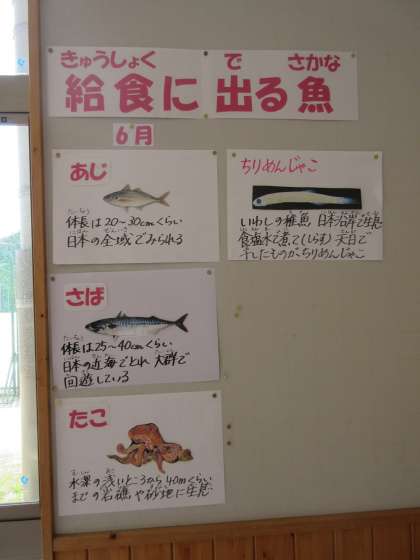 きゅうしょく で さかな
給食に 出る魚
6月
あじ
体長は20~30cmくらい
日本の全域でみられる
ちりめんじゃこ
いわしの稚魚 日本沿岸で生息
食塩水で煮て(しらす)天日で
干したものが、ちりめんじゃこ
さば
体長は25~40cmくらい
日本の近海でとれ 大群で
回遊している
たこ
水深の浅いところから40mくらい
までの岩礁や砂地に生息